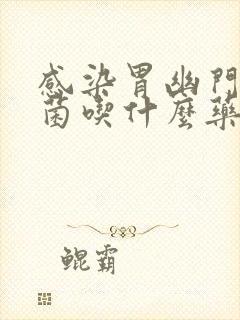 感染胃幽門
菌喫什麼藥
鯤霸